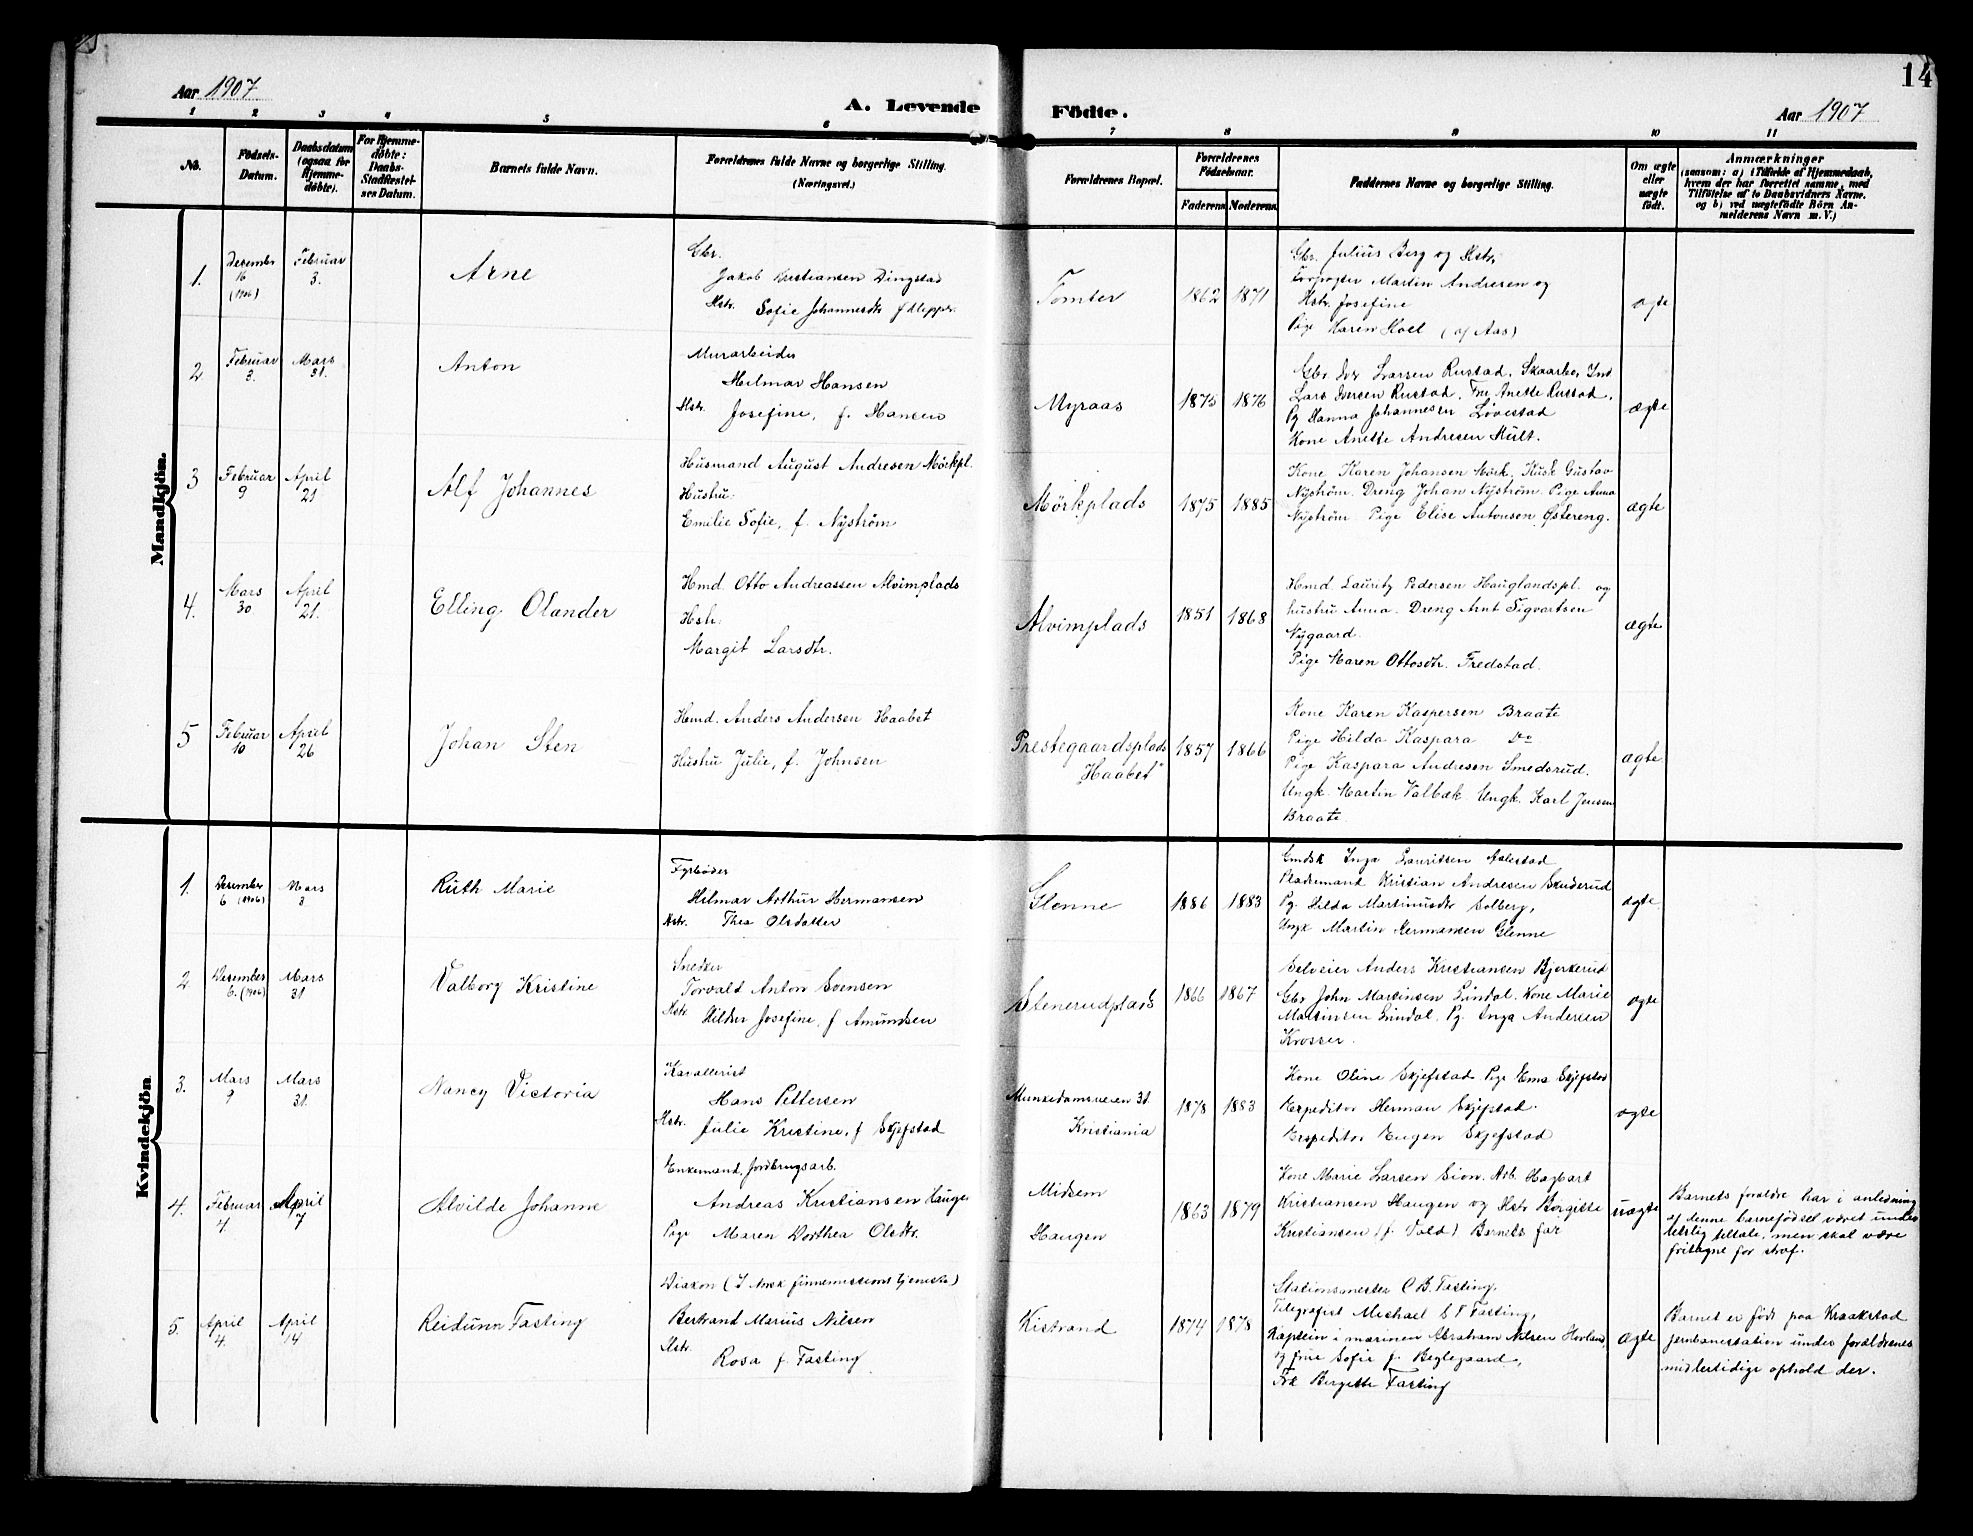 14
Aar 1907
A. Levende Födte.
Aar 1907
1 2 3 4 5 6 7 8 9 10 11
No.
Födsels-
Datum.
Daabsdatum
(ogsaa for
Hjemme-
døbte).
For Hjemme-
døbte:
Daabs-
Stadfæstel-
ses Datum.
Barnets fulde Navn.
Forældrenes fulde Navne og borgerlige Stilling.
(Næringsvei.)
Forældrenes Bopæl.
Forældrenes
Födselsaar.
Faderens Moderens
Faddernes Navne og borgerlige Stilling.
Om ægte
eller
uægte
födt.
Anmærkninger
(saasom: a) i Tilfælde af Hjemmedaab,
hvem der har forrettet samme, med
Tilföielse af to Daabsvidners Navne.
og b) ved uægtefödte Börn An-
melderens Navn m. V.)
Mandkjön.
1. Desember 16 (1906) Februar 3. Arne
Gbr.
Jakob Kristiansen Dingstad
Hstr. Sofie Johannesdtr
Tomter 1862 1871
Gbr. Julius Berg og Hstr.
Martin Andresen og
Hstr. Josefine
Pige Karen Hoel (af Aas)
ægte
2 Februar 3. Mars 31. Anton
Murarbeider
Hilmar Hansen
Hstr. Josefine, f. Hansen
Myraas 1875 1876
Gbr Iver Larsen Rustad, Skaarbo, Ind
Lars Iversen Rustad. Fru Anette Rustad.
Pg Hanna Johannesen Løvestad
Kone Anette Andresen Hult.
ægte
3 Februar 9 April 21 Alf Johannes
Husmand August Andresen Mörkpl.
Hustru:
Emilie Sofie, f. Nyström
Mörkplads 1875 1885
Kone Karen Johansen Mörk. Kusk Gustav
Nyström. Dreng Johan Nyström. Pige Anna
Nyström Pige Elise Antonsen Østereng.
ægte
4. Mars 30. April 21. Elling Olander
Hmd. Otto Andreassen Alvimplads
Hstr:
Margit Larsdtr.
Alvimplads 1851 1868
Hmd Lauritz Pedersen Hauglandspl. og
hustru Anna. Dreng Arnt Sigvartsen
Nygaard.
Pige Maren Ottosdtr. Fredstad.
ægte
5 Februar 10 April 26 Johan Sten
Hmd. Anders Andersen Haabet
Hustru Julie, f. Johnsen
Prestegaardsplads
Haabet" 1857 1866
Kone Karen Kaspersen Braate
Pige Hilda Kaspara Do
Pige Kaspara Andresen Smedsrud.
Ungk. Martin Valbæk Ungk. Karl Jensen
Braate.
ægte
Kvindekjön
1. Desember 6 (1906) Mars 3 Ruth Marie
Fyrbøder
Hilmar Arthur Hermansen
Hstr. Thea Olsdatter
Glenne 1886 1883
Gmdsk Inga Lauritsen
Pladsmand Kristian Andresen Skuderud
Pg. Hilda Martinusdtr Solberg,
Ungk Martin Hermansen Glenne
ægte
2 Desember 6. (1906) Mars 31 Valborg Kristine
Snedker
Torvald Anton Svensen
Hstr Hilder Josefine, f Amundsen
Stenerudplads 1866 1867
Selveier Anders Kristiansen Bjerkerud
Gbr John Martinsen Lindal. Kone Marie
Martinsen Lindal. Pg. Inga Andersen
Krosser.
ægte
3. Mars 9 Mars 31. Nancy Victoria
Kavallerist
Hans Pettersen
Hstr. Julie Kristine, f Skjefstad
Munkedamsveien 31.
Kristiania 1878 1883
Kone Oline Skjefstad Pige Ema Skjefstad
Expeditor Herman Skjefstad.
Expeditor Eugen Skjefstad
ægte
4. Februar 4 April 7 Alvilde Johanne
Enkemand, Jordbrugsarb.
Andreas Kristiansen Haugen
Pige Maren Dorthea Olsdtr.
Midsem
Haugen 1863 1879
Kone Marie Larsen Sion. Arb. Hagbart
Kristiansen Haugen og Hstr Borgitte
Kristiansen (f. Vold) Barnets far
uægte
Barnets forældre har i anledning
af denne barnefødsel været under
retslig tiltale, men skal være
fritagne for straf.
5. April 4. April 14 Reidunn Fasting
Diakon (I finnemissions tjeneste)
Bertrand Marius Nilsen
Hstr.
Rosa f. Fasting
Kistrand 1874 1878
Stationsmester C B. Fasting.
Telegrafist Michael S F Fasting,
Kaptein i marinen Abraham Nilsen Hovland,
og frue Sofie f.
Frk Bergitte Fasting
ægte
Barnet er født paa Kraakstad
jernbanestation under forældrenes
midlertidige ophold der.